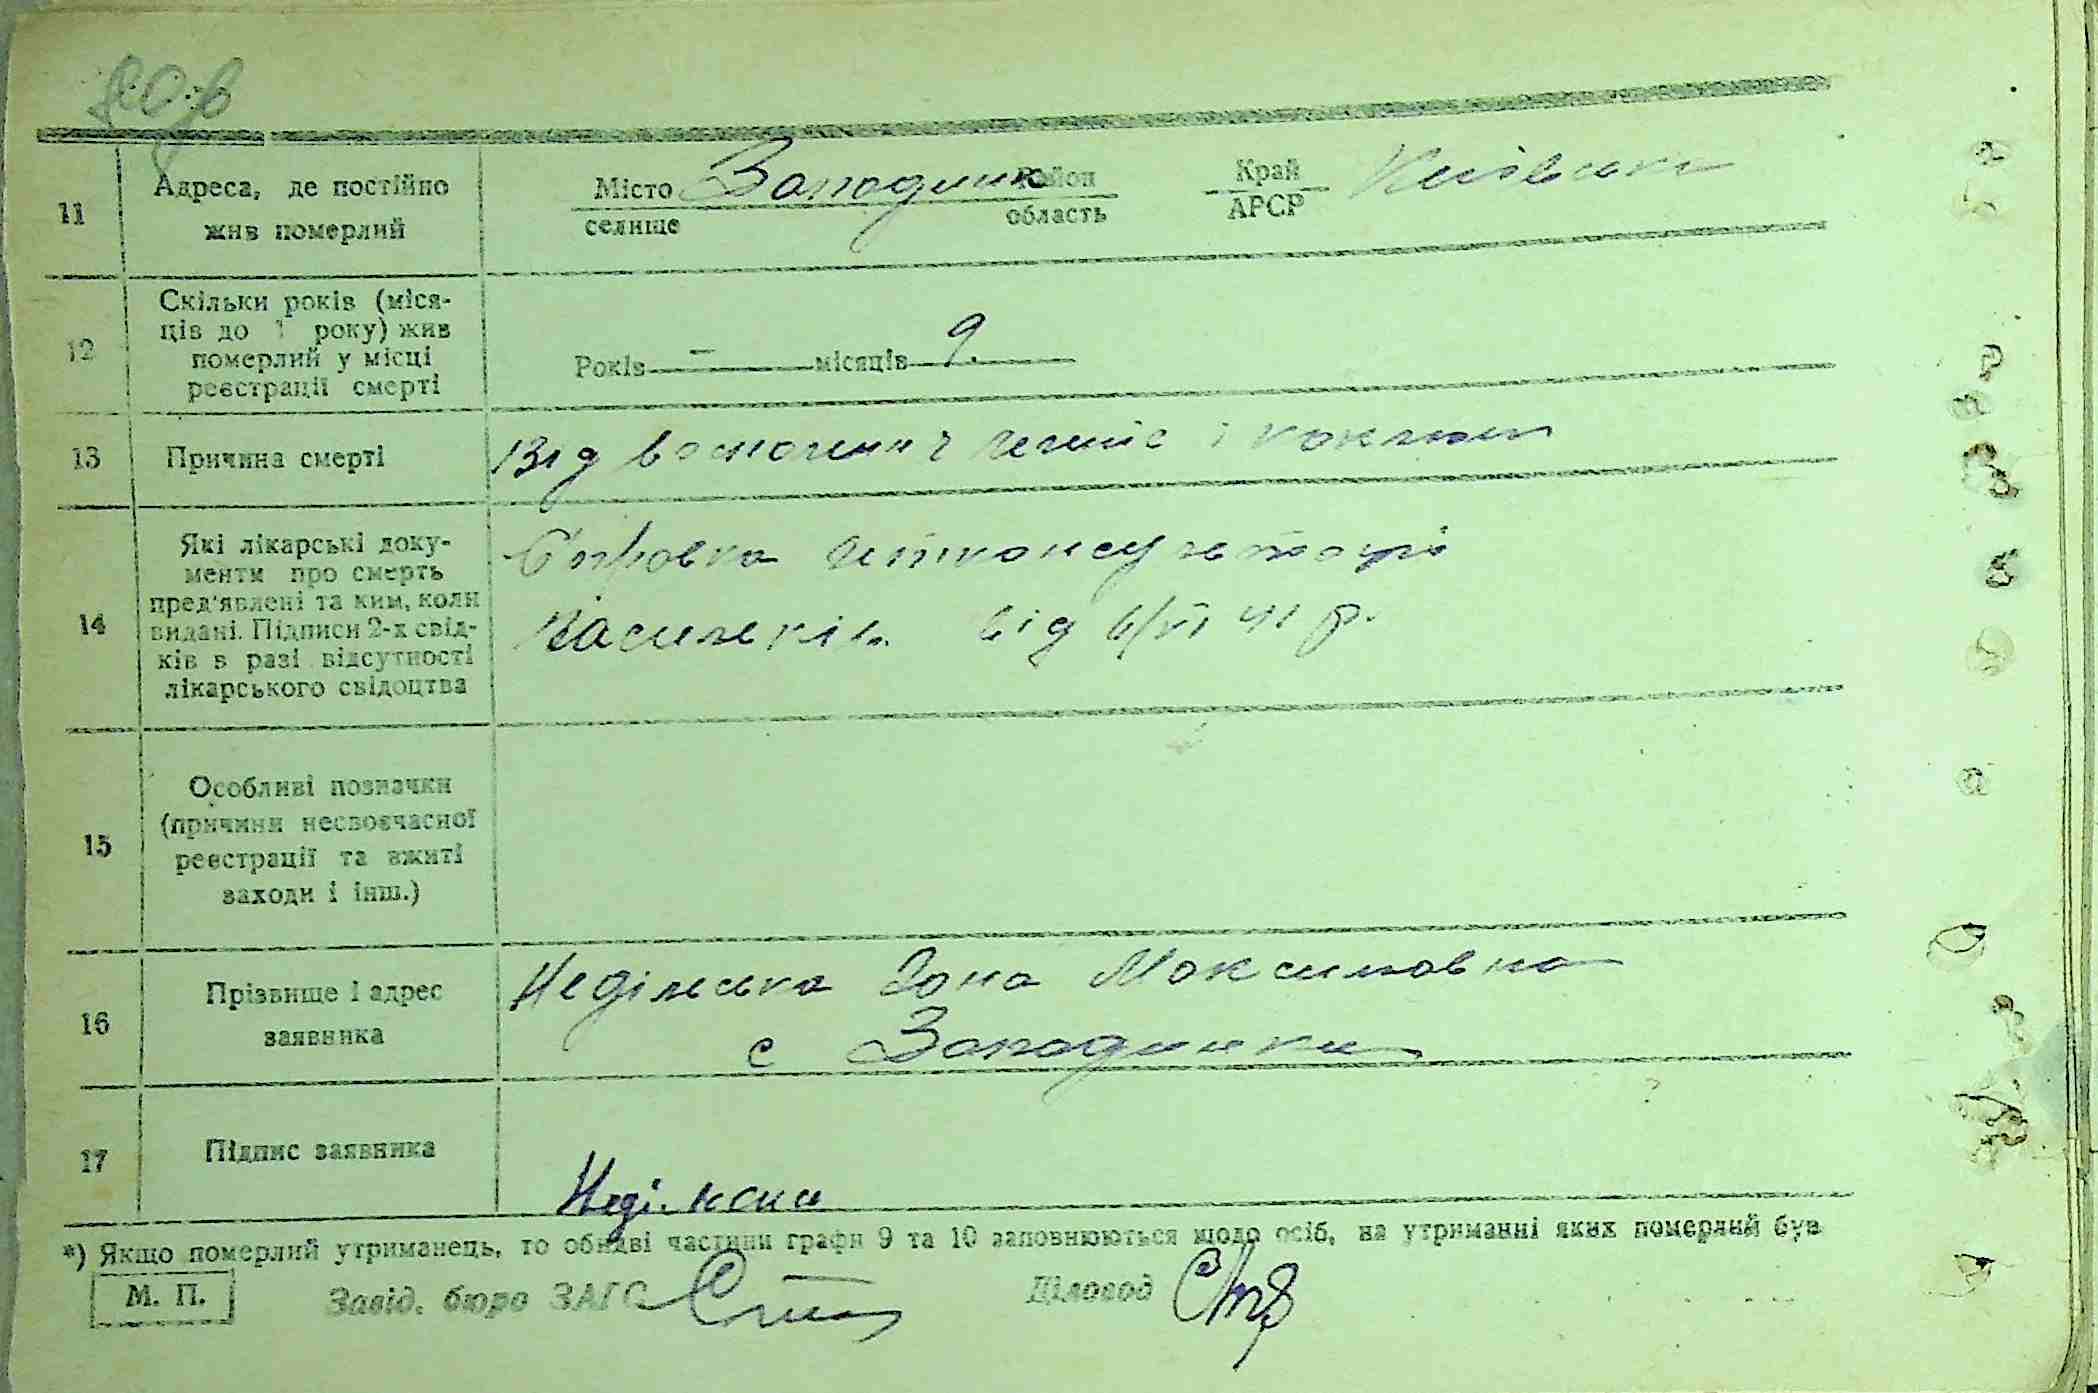 11
Адреса, де постійно
жив померлий
Місто Западинка район Край Київська
селище область АРСР
12
Скільки років (міся-
ців до 1 року) жив
померлий у місці
реєстрації смерті
Років — місяців 9.
13
Причина смерті
Від воспочення легкіє і коклюш
14
Які лікарські доку-
менти про смерть
пред'явлені та ким, коли
видані. Підписи 2-х свід-
ків в разі відсутності
лікарського свідоцтва
Справка
Васильків від 6/VI 41 р.
15
Особливі позначки
(причини несвоєчасної
реєстрації та вжиті
заходи і інш.)
16
Прізвище і адрес
заявника
Недільська Максимовна
с Западинка
17
Підпис заявника
Недільска
*) Якщо померлий утриманець, то обидві частини графи 9 та 10 заповнюються щодо осіб, на утриманні яких померлий був
М. П. Завід. бюро ЗАГС Діловод